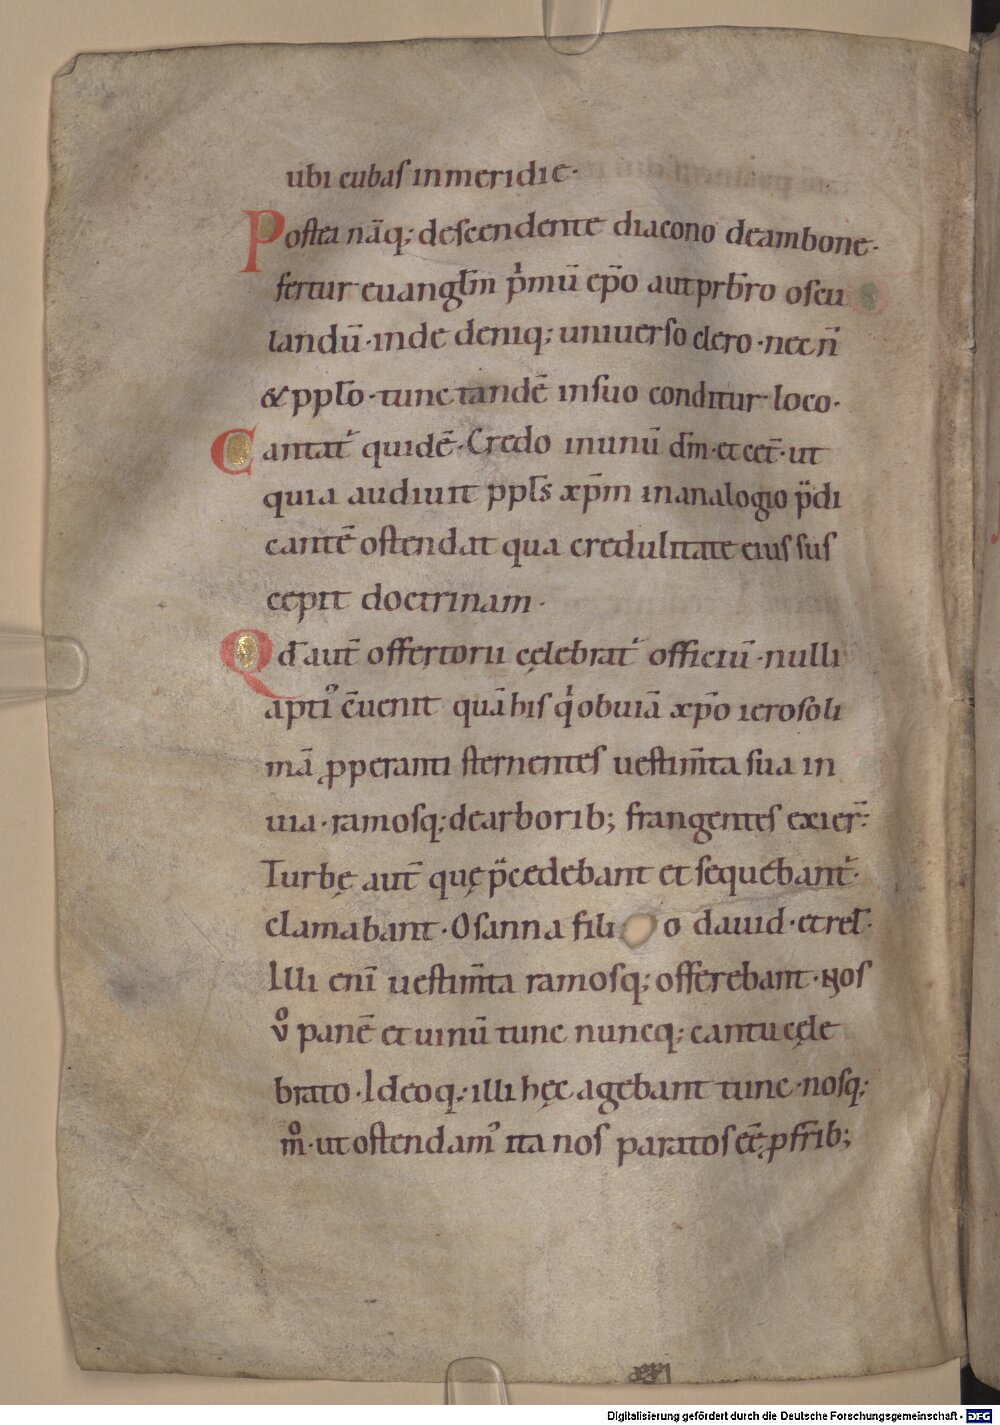 ubi cubaſ inmeridie·
Poſtea nāq; deſcendente diacono deambone·
fertur euangłm pͥmū ep̄o aut prb̄ro oſcu
landū·inde deniq; uniuerſo clero·nec n̄
& ppło·tunc tandē inſuo conditur loco·
Cantat᷑ quidē·Credo inunū dm̄·et cet̄·ut
quia audiuit ppłs xp̄m inanalogio p̈di
cantē oſtendat qua credulitate eiuſ ſuſ
cepit doctrinam·
Qđ aut̄ offertorii cęlebrat᷑ officiū·nulli
apti᷒ c̄uenit quā hiſ qͥ obuiā xp̄o ieroſoli
mā ꝓperanti ſternenteſ ueſtim̄ta ſua in
uia·ramoſq; dearborib; frangenteſ exier̄:
Turbę aut̄ quę p̈cedebant et ſequebant᷑·
clamabant·Oſanna fili o dauid·et reł·
Illi enī ueſtim̄ta ramoſq; offerebant·Noſ
vͦ panē et uinū tunc nuncq; cantu cęle
brato·Ideoq; illi hęc agebant tunc·noſq;
mͦ·ut oſtendam᷒ ita noſ paratoſ ēē ꝓ fr̄ib;
Digitalisierung gefördert durch die Deutsche Forschungsgemeinschaft - DFG